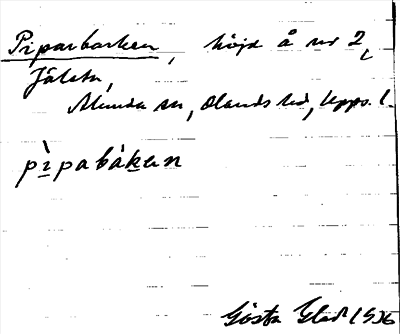 Piparbacken, höjd å nr 2,
Jälsta,
Almunda sn, Olands hd, Upps. l.
pìpabákan
Gösta Glad 1936